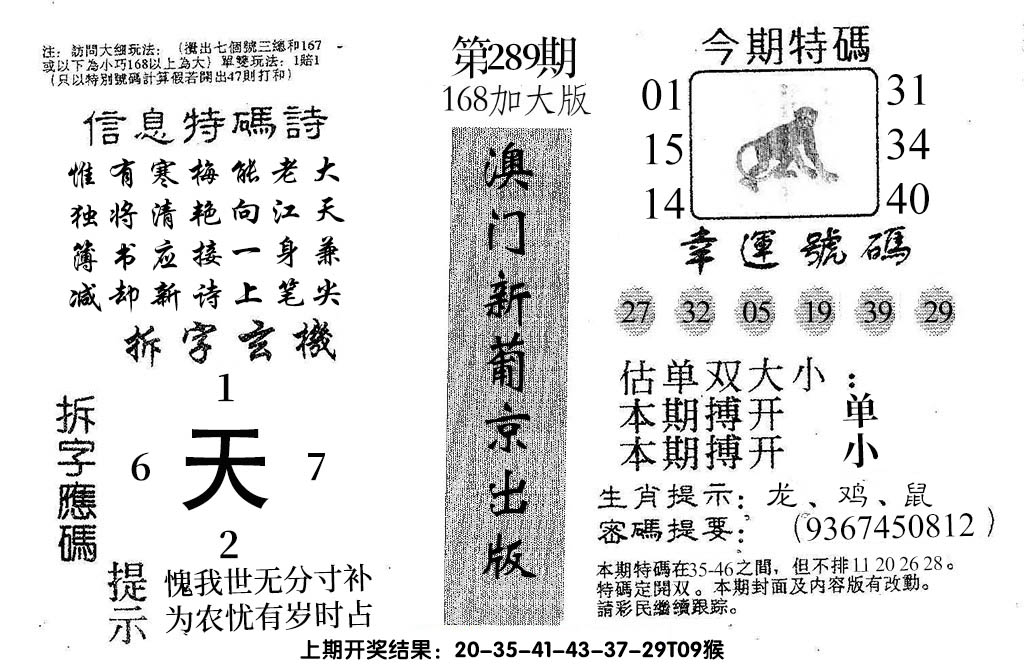 注：訪問大细玩法：（攪出七個號三總和167
或以下為小巧168以上為大）單雙玩法：1賠1
（只以特別號碼計算假若開出47則打和）
信息特碼詩
惟有寒梅能老大
独将清艳向江天
簿书应接一身兼
减却新诗上笔尖
拆字玄機
拆字應碼
1
6 天 7
2
提示
愧我世无分寸补
为农忧有岁时占
第289期
168加大版
澳门新葡京出版
今期特碼
01 31
15 34
14 40
幸運號碼
27 32 05 19 39 29
估单双大小：
本期搏开 单
本期搏开 小
生肖提示：龙、鸡、鼠
密碼提要：（9367450812）
本期特碼在35-46之間，但不排11 20 26 28。
特碼定開双。本期封面及内容版有改動。
請彩民繼續跟踪。
上期开奖结果：20-35-41-43-37-29T09猴